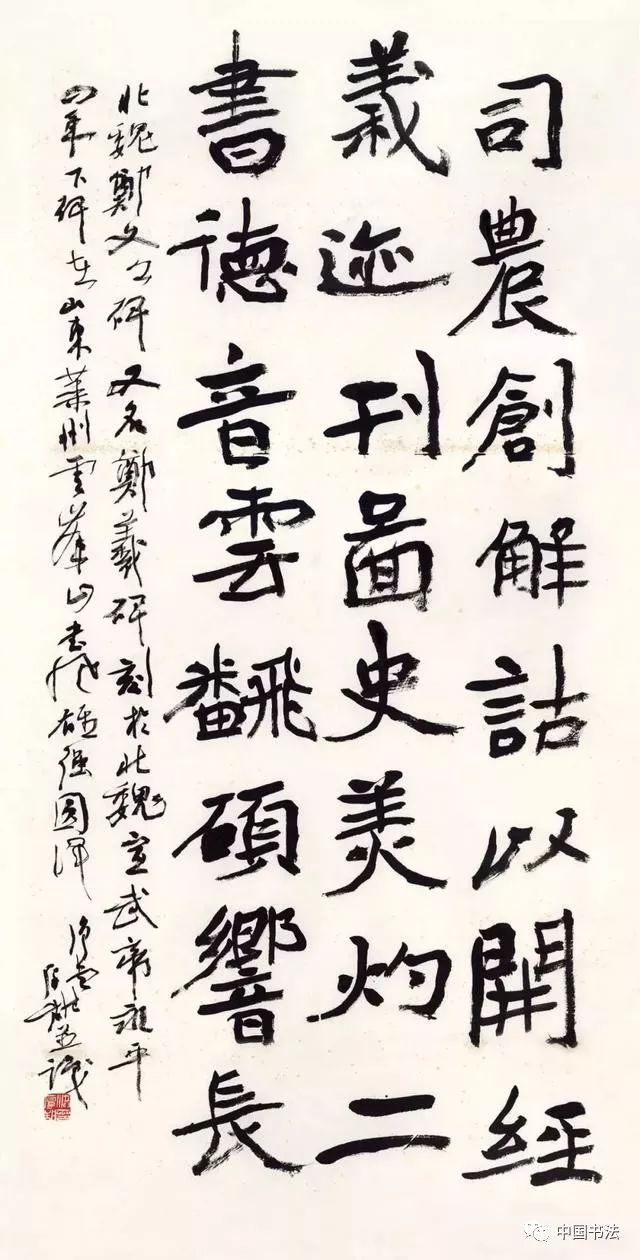 司農創解詁以開經
義迹刊圖史美灼二
書德音雲飜碩響長
北魏鄭文公碑又名鄭羲碑刻於北魏宣武帝永平
四年下碑在山東萊州雲峯山書
雄強圓渾
識
中国书法